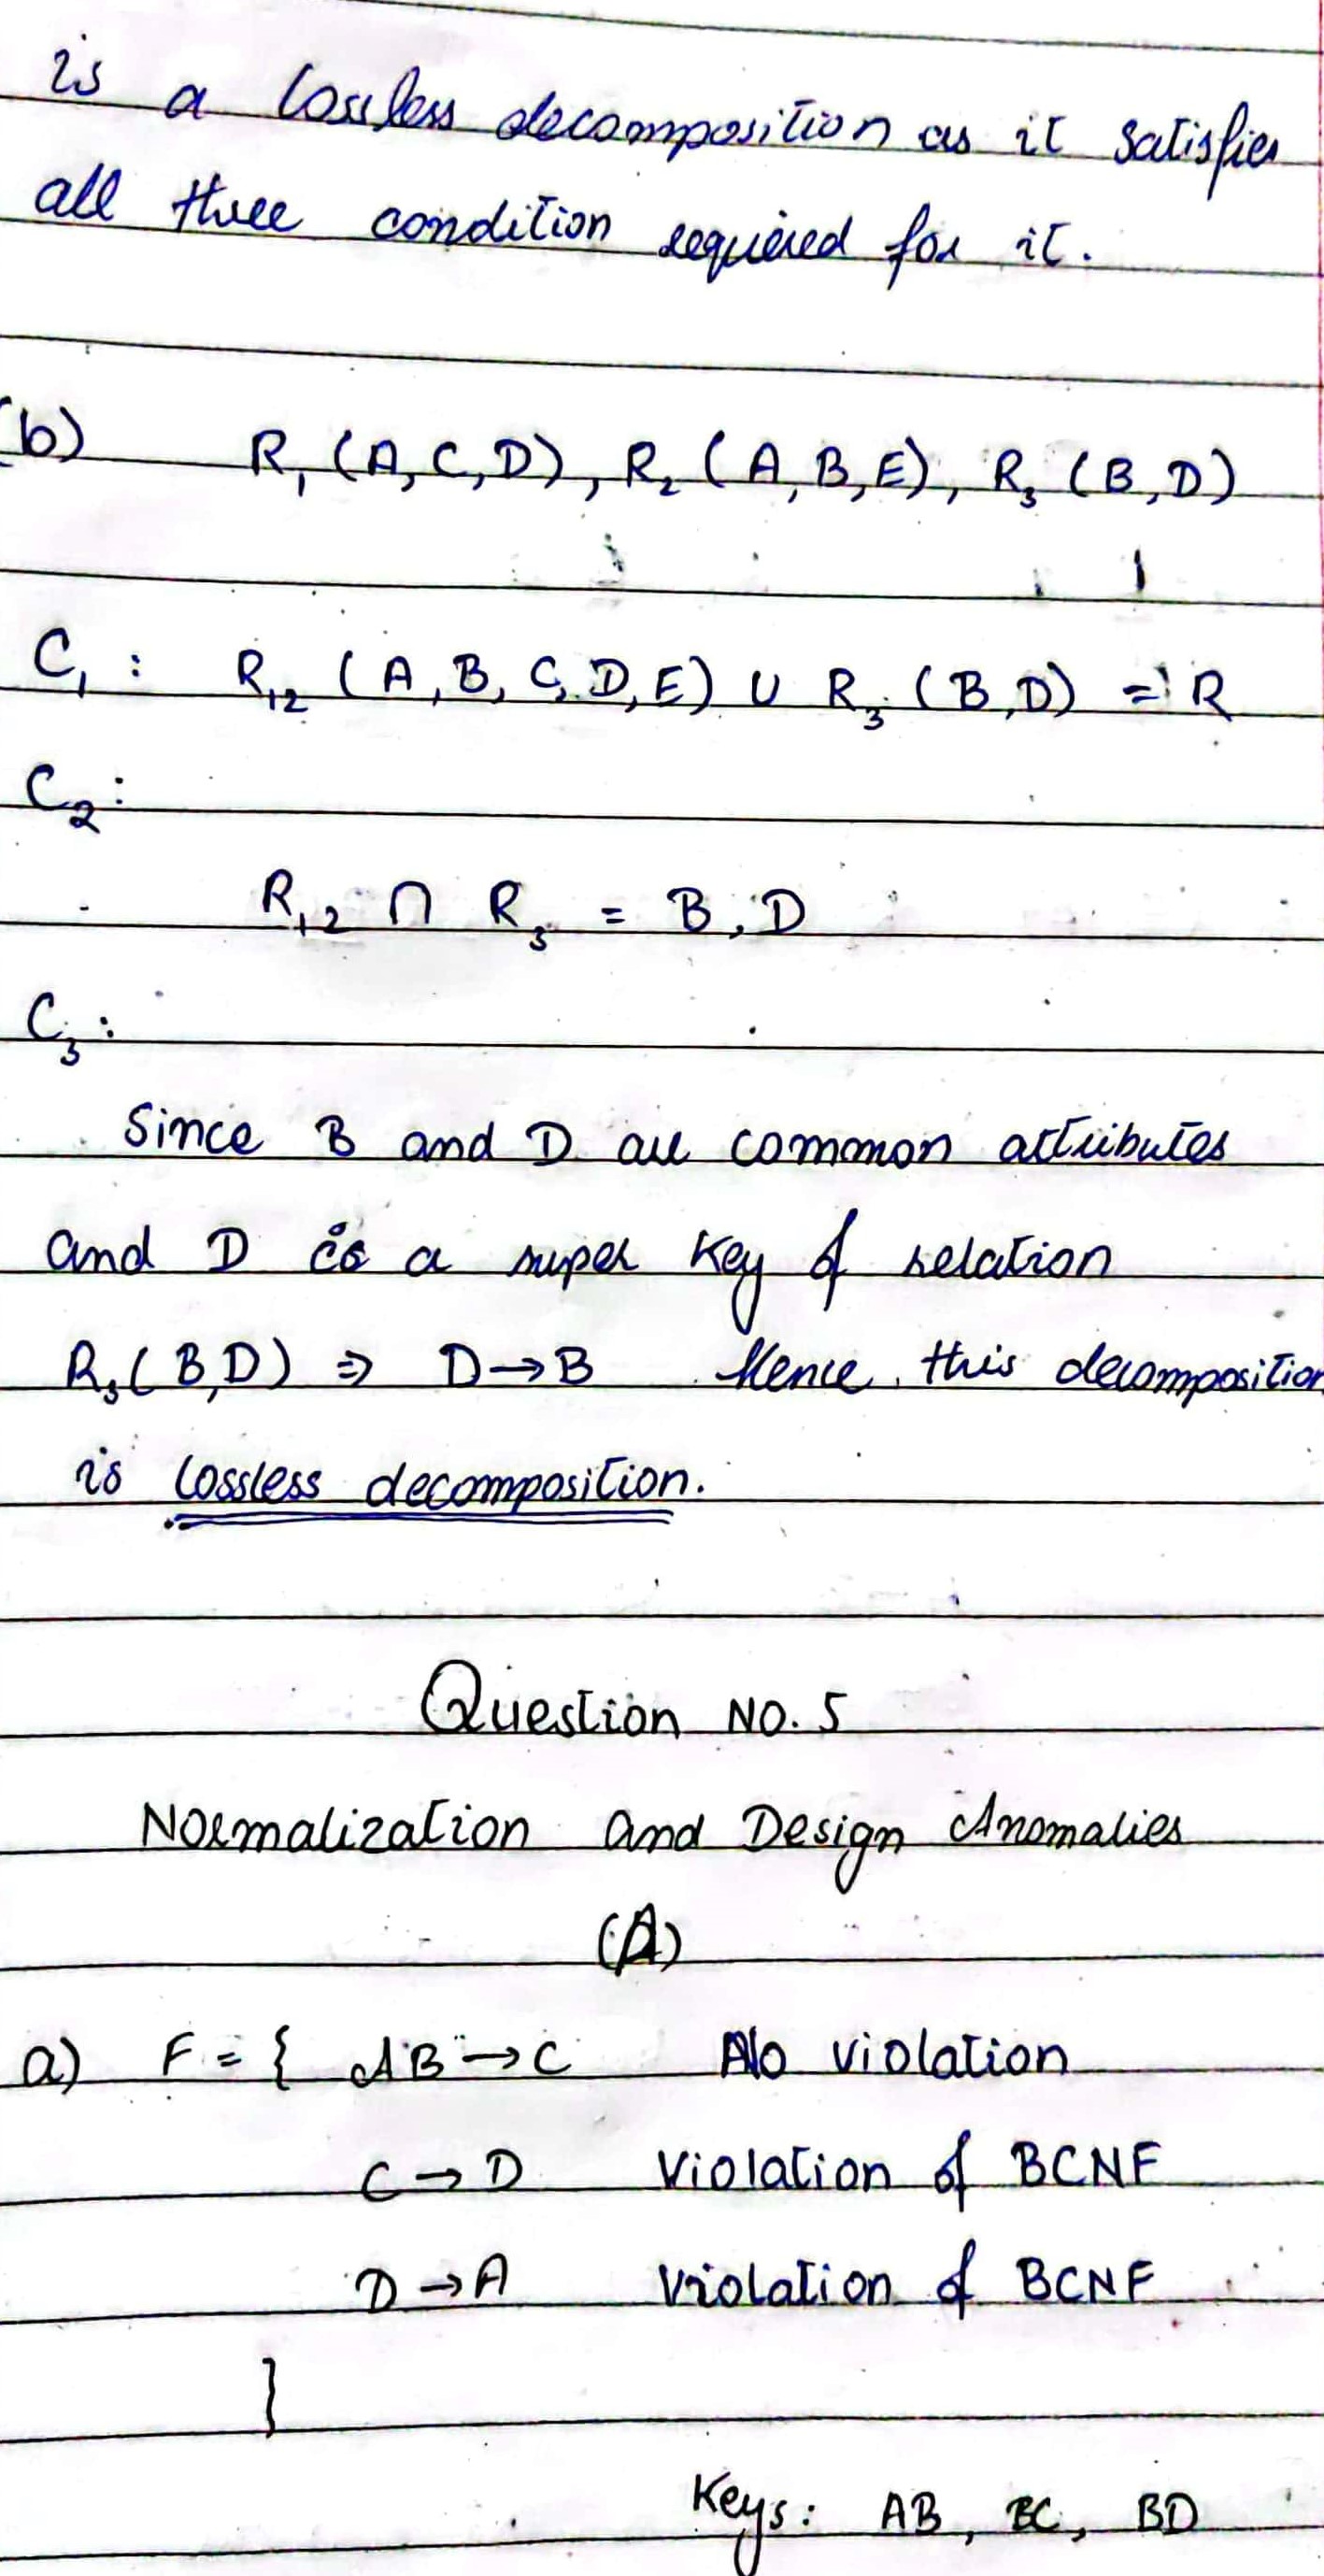 is a lossless decomposition as it satisfies
all three condition required for it.
(b) R₁ (A,C,D), R₂ (A,B,E), R₃ (B,D)
C₁ : R₁₂ (A,B,C,D,E) ∪ R₃ (B,D) = R
C₂ :
R₁₂ ∩ R₃ = B, D
C₃ :
Since B and D are common attributes
and D is a super key of relation
R₃(B,D) ⇒ D→B Hence, this decomposition
is lossless decomposition.
Question NO. 5
Normalization and Design Anomalies
(A)
a) F = { AB → C No violation
C → D Violation of BCNF
D → A Violation of BCNF
}
Keys: AB, BC, BD